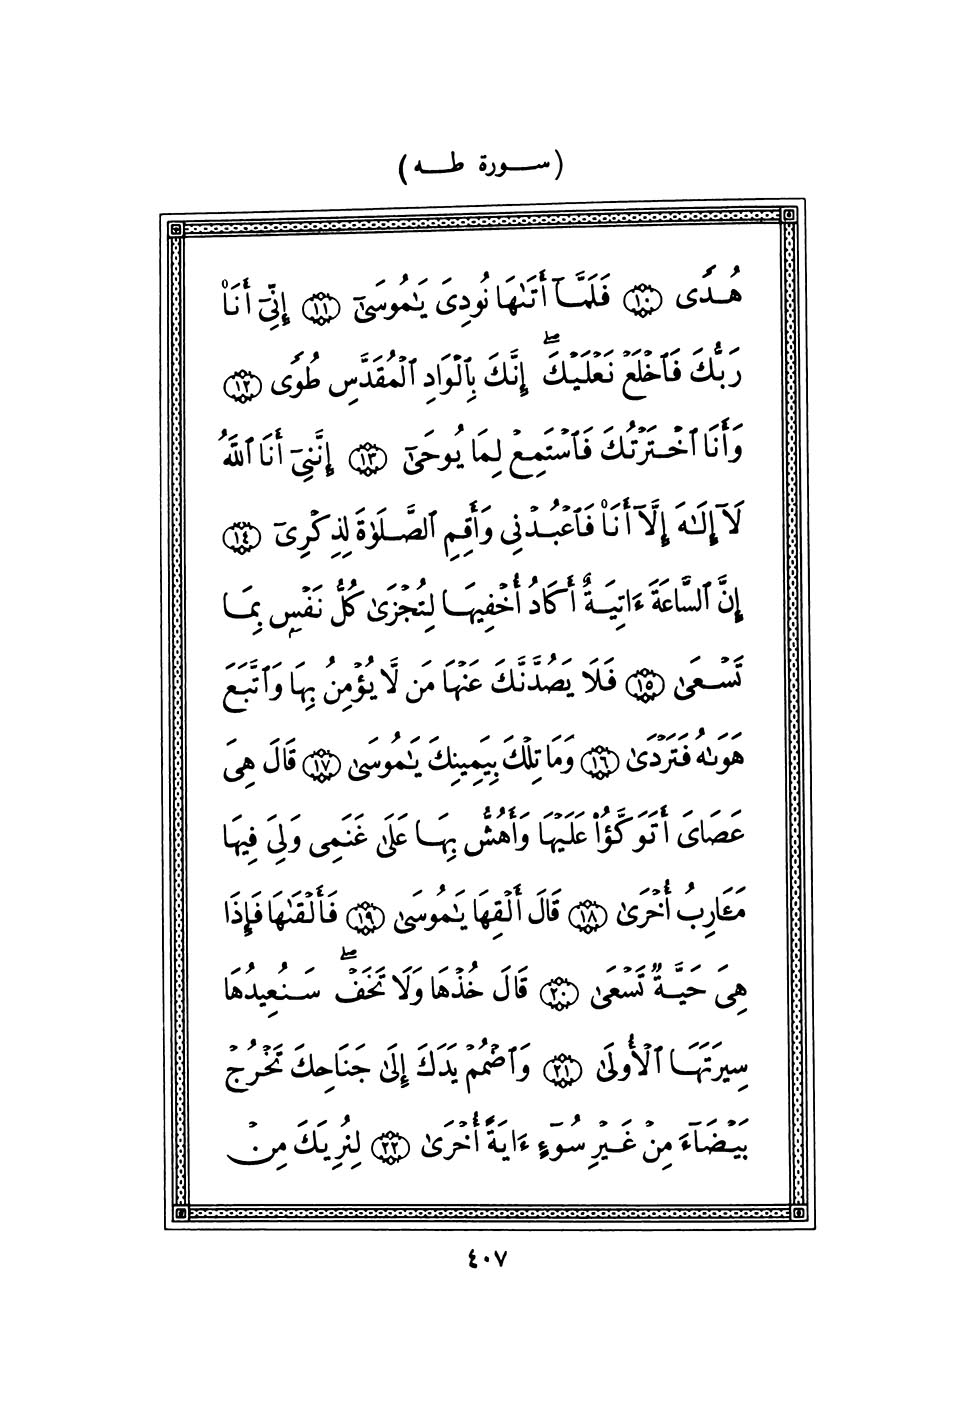 (سورة طه)
هُدًى ﴿١٠﴾ فَلَمَّآ أَتَىٰهَا نُودِىَ يَـٰمُوسَىٰٓ ﴿١١﴾ إِنِّىٓ أَنَا۠
رَبُّكَ فَٱخْلَعْ نَعْلَيْكَ ۖ إِنَّكَ بِٱلْوَادِ ٱلْمُقَدَّسِ طُوًى ﴿١٢﴾
وَأَنَا ٱخْتَرْتُكَ فَٱسْتَمِعْ لِمَا يُوحَىٰٓ ﴿١٣﴾ إِنَّنِىٓ أَنَا ٱللَّهُ
لَآ إِلَـٰهَ إِلَّآ أَنَا۠ فَٱعْبُدْنِى وَأَقِمِ ٱلصَّلَوٰةَ لِذِكْرِىٓ ﴿١٤﴾
إِنَّ ٱلسَّاعَةَ ءَاتِيَةٌ أَكَادُ أُخْفِيهَا لِتُجْزَىٰ كُلُّ نَفْسٍۭ بِمَا
تَسْعَىٰ ﴿١٥﴾ فَلَا يَصُدَّنَّكَ عَنْهَا مَن لَّا يُؤْمِنُ بِهَا وَٱتَّبَعَ
هَوَىٰهُ فَتَرْدَىٰ ﴿١٦﴾ وَمَا تِلْكَ بِيَمِينِكَ يَـٰمُوسَىٰ ﴿١٧﴾ قَالَ هِىَ
عَصَاىَ أَتَوَكَّؤُا۟ عَلَيْهَا وَأَهُشُّ بِهَا عَلَىٰ غَنَمِى وَلِىَ فِيهَا
مَـَٔارِبُ أُخْرَىٰ ﴿١٨﴾ قَالَ أَلْقِهَا يَـٰمُوسَىٰ ﴿١٩﴾ فَأَلْقَىٰهَا فَإِذَا
هِىَ حَيَّةٌ تَسْعَىٰ ﴿٢٠﴾ قَالَ خُذْهَا وَلَا تَخَفْ ۖ سَنُعِيدُهَا
سِيرَتَهَا ٱلْأُولَىٰ ﴿٢١﴾ وَٱضْمُمْ يَدَكَ إِلَىٰ جَنَاحِكَ تَخْرُجْ
بَيْضَآءَ مِنْ غَيْرِ سُوٓءٍ ءَايَةً أُخْرَىٰ ﴿٢٢﴾ لِنُرِيَكَ مِنْ
٤٠٧